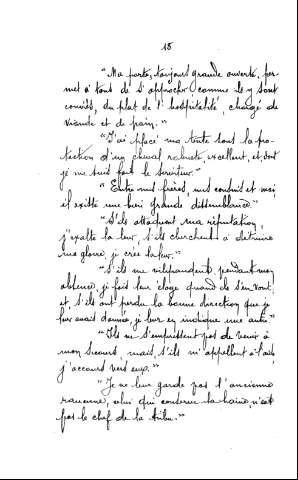 18
"Ma porte, toujours grande ouverte, per-
met à tous de s'approcher comme ils y sont
conviés, du plat de l'hospitalité chargé de
viande et de pain."
"J'ai placé ma tente sous la pro-
tection d'un cheval robuste, excellent, et dont
je me suis fait le serviteur."
"Entre mes frères, mes cousins et moi
il existe une bien grande dissemblance."
"S'ils attaquent ma réputation,
j'exalte la leur, s'ils cherchent à détruire
ma gloire, je crée la leur."
"S'ils me vilipendent pendant mon
absence je fais leur éloge quand ils s'en vont,
et s'ils ont perdu la bonne direction que je
leur avais donnée, je leur en indique une autre."
"Ils ne s'empressent pas de venir à
mon secours, mais, s'ils m'appellent à l'aide,
j'accours vers eux."
"Je ne leur garde pas l'ancienne
rancune, celui qui conserve la haine, n'est
pas le chef de la tribu."